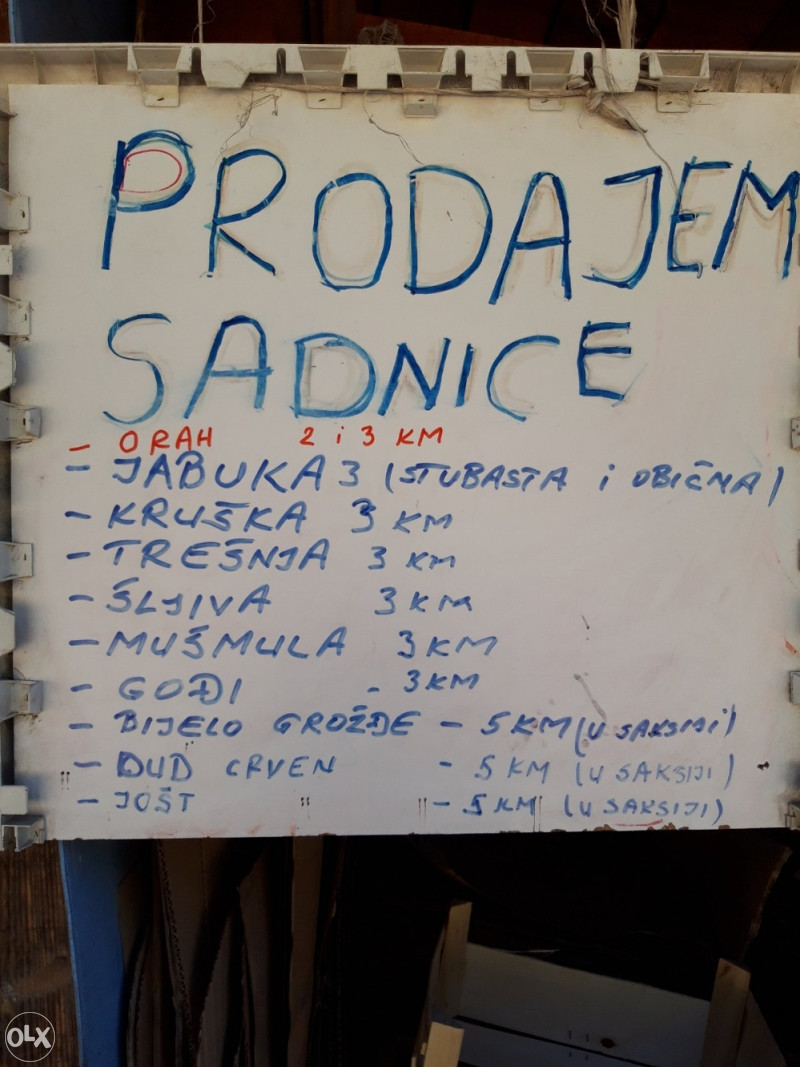 PRODAJEM
SADNICE
- ORAH 2 i 3 KM
- JABUKA 3 (STUBASTA i OBIČNA)
- KRUŠKA 3 KM
- TREŠNJA 3 KM
- ŠLJIVA 3 KM
- MUŠMULA 3 KM
- GOĐI - 3 KM
- BIJELO GROŽĐE - 5 KM (U SAKSIJI)
- DUD CRVEN - 5 KM (U SAKSIJI)
- JOŠT - 5 KM (U SAKSIJI)
OLX